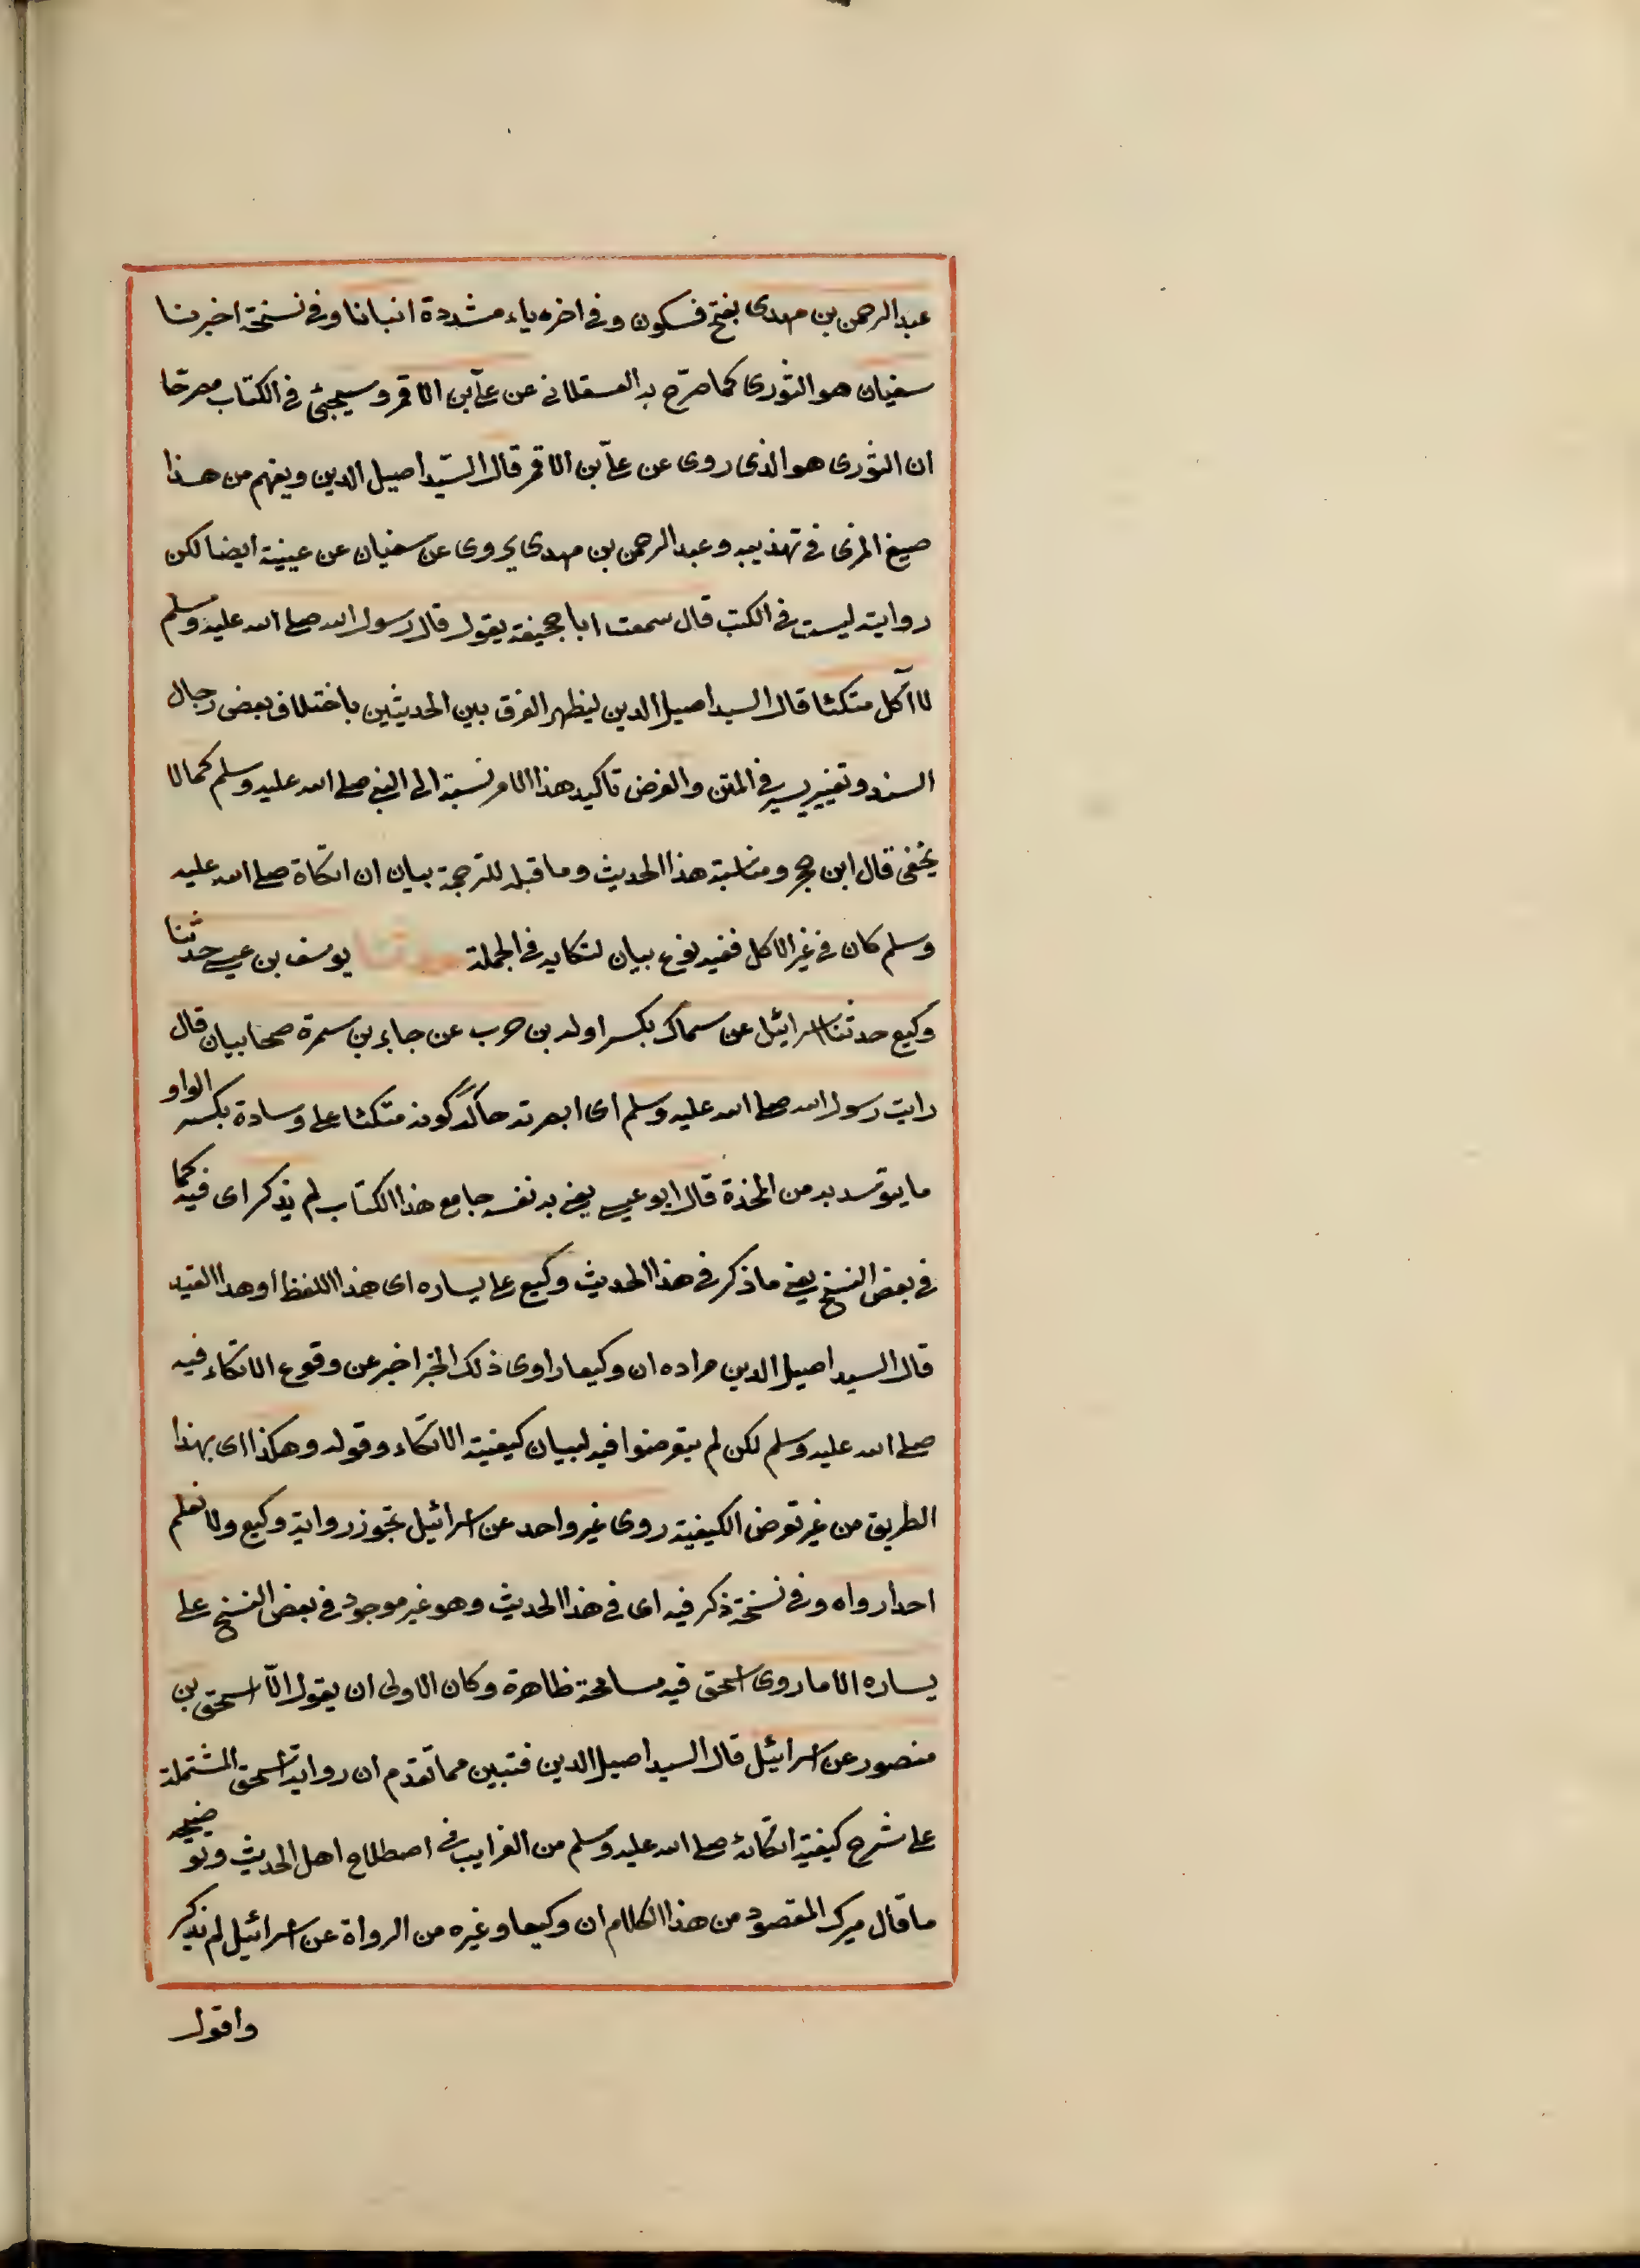 عبد الرحمن بن مهدى بفتح فسكون وفى اخره ياء مشددة انبانا وفى نسخة اخبرنا
سفيان هو الثورى كما صرّح به العسقلانى عن علّى بن الاقمر وسيجئ فى الكتاب مصرحا
ان الثورى هو الذى روى عن علّى بن الاقمر قال السّيد اصيل الدين ويفهم من هذا
صيغ المزى فى تهذيبه وعبد الرحمن بن مهدى يروى عن سفيان عن عيينة ايضا لكن
روايته ليست فى الكتب قال سمعت ابا جحيفة يقول قال رسول الله صلى الله عليه وسلم
لا اٰكل متكئا قال السيد اصيل الدين ليظهر الفرق بين الحديثين باختلاف بعض رجال
السند وتغيير يسير فى المتن والغرض تاكيد هذا الامر نسبة الى النبى صلى الله عليه وسلم كما لا
يخفى قال ابن حجر ومناسبة هذا الحديث وما قبله للترجمة بيان ان اتكاة صلى الله عليه
وسلم كان فى غير الاكل ففيه نوع بيان لتكايه فى الجملة حدثنا يوسف بن عيسى حدثنا
وكيع حدثنا اسرائيل عن سماك بكسر اوله بن حرب عن جابر بن سمرة صحابيان قال
رايت رسول الله صلى الله عليه وسلم اى ابصرته حال كونه متكئا على وسادة بكسر الواو
ما يتوسد به من المخدة قال ابو عيسى يعنى به نفسه جامع هذا الكتاب لم يذكر اى فيه كما
فى بعض النسخ يعنى ما ذكر فى هذا الحديث وكيع على يساره اى هذا اللفظ او هذا القيد
قال السيد اصيل الدين مراده ان وكيعا راوى ذلك الخبر اخبر عن وقوع الاتكاء فيه
صلى الله عليه وسلم لكن لم يتعرضوا فيه لبيان كيفية الاتكاء وقوله وهكذا اى بهذا
الطريق من غير تعرض الكيفية روى غير واحد عن اسرائيل نحو رواية وكيع ولا نعلم
احدا رواه وفى نسخة ذكر فيه اى فى هذا الحديث وهو غير موجود فى بعض النسخ على
يساره الا ما روى اسحق فيه مسامحة ظاهرة وكان الاولى ان يقول الّا اسحق بن
منصور عن اسرائيل قال السيد اصيل الدين فتبين مما تقدم ان رواية اسحق المشتملة
على شرح كيفية اتكائه صلى الله عليه وسلم من الغرايب فى اصطلاح اهل الحديث وتوضيحه
ما قال ميرك المقصود من هذا الكلام ان وكيعا وغيره من الرواة عن اسرائيل لم يذكر
واقول